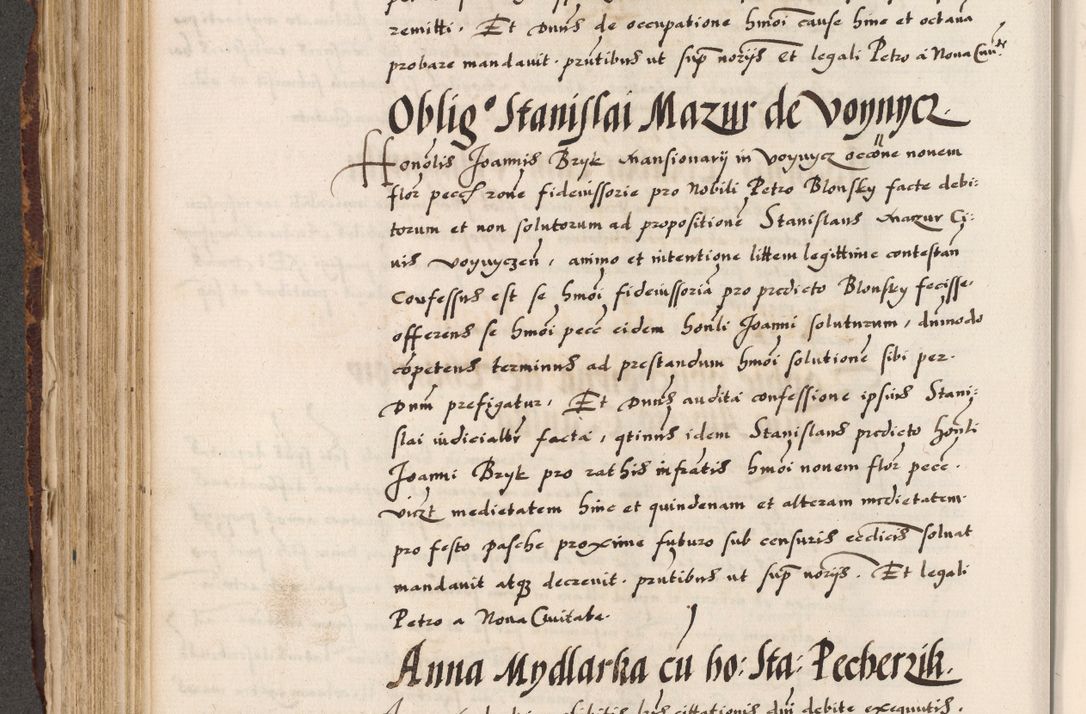 remitti. Et Dnus de occupatione hmoi cause hinc et octava
probare mandavit. pntibus ut sup norijs Et legali Petro a Nova Civit
Oblig° Stanislai Mazur de Voynycz.
Honolis Joannis Bryk Mansionarij in Voynycz occone novem
flor pecc rone fideiussorie pro Nobili Petro Blonsky facte debi:
torum et non solutorum ad propositione Stanislaus Mazur Ci:
vis Voynyczen, animo et intentione littem legittime contestan
Confessus est se hmoi fideiussoria pro predicto Blonsky fecisse.
offerens se hmoi pecc eidem honli Joanni soluturum, dummodo
competens terminus ad prestandum hmoi solutione sibi per.
Dnm prefigatur, Et Dnus audita confessione ipsius Stani:
slai iudicialtr facta, qtinus idem Stanislaus predicto honli
Joanni Bryk pro rathis infratis hmoi novem flor pecc.
viczt medietatem hinc et quindenam et alteram medietatem
pro festo pasche proxime futuro sub censuris ecclicis solvat
mandavit atqz decrevit. pntibus ut sup norijs. Et legali
Petro a Nova Civitate.
Anna Mydlarka cu ho: Sta: Pecherzik.
citationis dni debite exequutis.